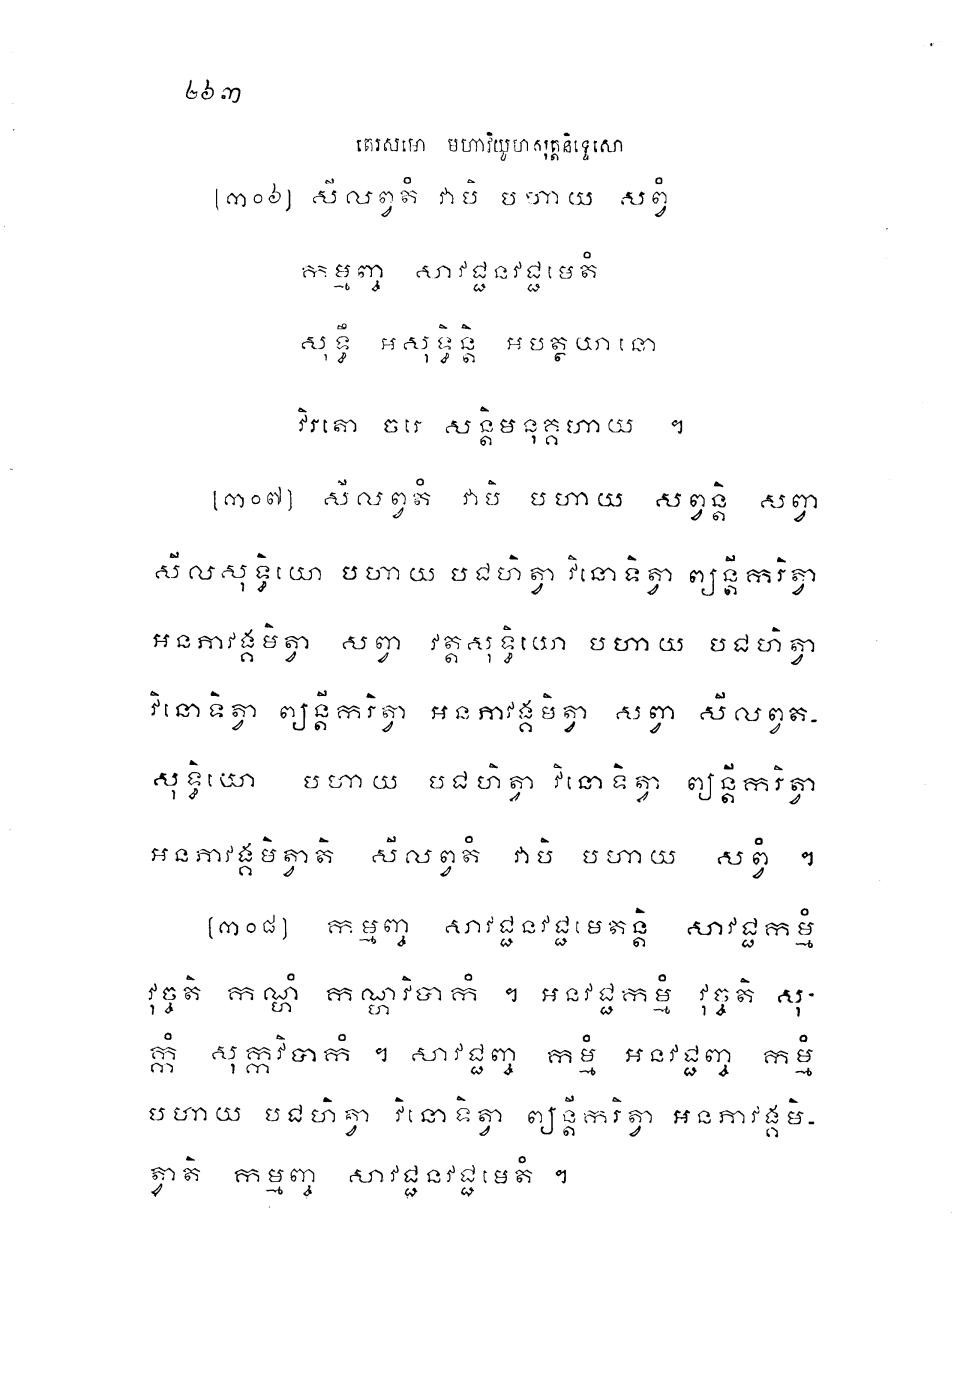 ២៦៣
តេរសមោ មហាវិយូហសុត្តនិទ្ទេសោ
[៣០៦] សីលព្វតំ វាបិ បហាយ សព្វំ
កម្មញ្ច សាវជ្ជនវជ្ជមេតំ
សុទ្ធឹ អសុទ្ធិន្តិ អបត្ថយានោ
វិរតោ ចរេ សន្តិមនុគ្គហាយ ។
[៣០៧] សីលព្វតំ វាបិ បហាយ សព្វន្តិ សព្វា
សីលសុទ្ធិយោ បហាយ បជហិត្វា វិនោទិត្វា ព្យន្តីករិត្វា
អនភាវង្គមិត្វា សព្វា វត្តសុទ្ធិយោ បហាយ បជហិត្វា
វិនោទិត្វា ព្យន្តីករិត្វា អនភាវង្គមិត្វា សព្វា សីលព្វត-
សុទ្ធិយោ បហាយ បជហិត្វា វិនោទិត្វា ព្យន្តីករិត្វា
អនភាវង្គមិត្វាតិ សីលព្វតំ វាបិ បហាយ សព្វំ ។
[៣០៨] កម្មញ្ច សាវជ្ជនវជ្ជមេតន្តិ សាវជ្ជកម្មំ
វុច្ចតិ កណ្ហំ កណ្ហវិបាកំ ។ អនវជ្ជកម្មំ វុច្ចតិ សុ-
ក្កំ សុក្កវិបាកំ ។ សាវជ្ជញ្ច កម្មំ អនវជ្ជញ្ច កម្មំ
បហាយ បជហិត្វា វិនោទិត្វា ព្យន្តីករិត្វា អនភាវង្គមិ-
ត្វាតិ កម្មញ្ច សាវជ្ជនវជ្ជមេតំ ។